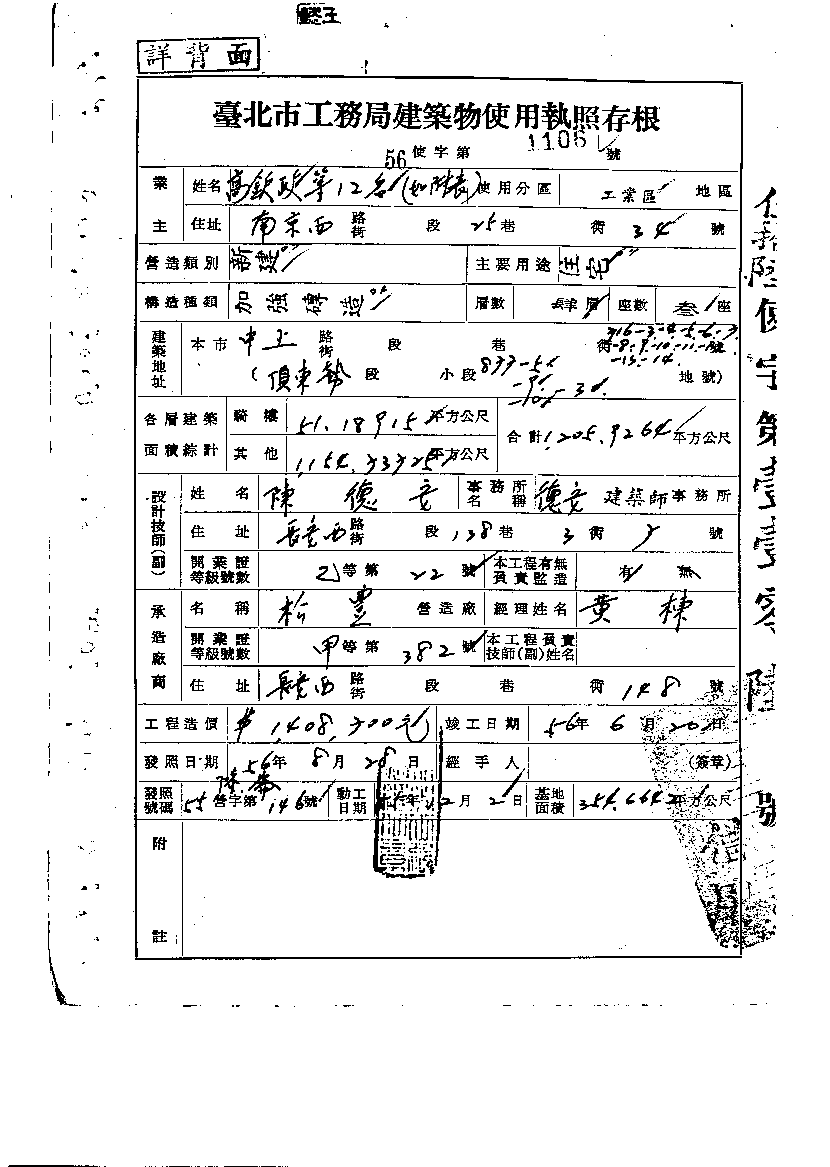 詳背面
臺北市工務局建築物使用執照存根
56使字第1106號
業主 姓名 高欽政等12名(如附表) 使用分區 工業區 地區
住址 南京西 路街 段 25巷 街 34 號
營造類別 新建 主要用途 住宅
構造種類 加強磚造 層數 層 座數 叁座
建築地址 本市 中 路街 段 巷 街
(頂東勢段 小段 833-5 地號)
各層建築面積綜計 騎樓 51.18915平方公尺 合計1,205.9264平方公尺
其他 1,154.73725平方公尺
設計技師(副) 姓名 陳德 事務所名稱 德 建築師事務所
住址 長安西 路街 段 138巷 3街 號
開業證等級號數 乙等第22號 本工程有無負責監造 有 無
承造廠商 名稱 松豐 營造廠 經理姓名 黄棟
開業證等級號數 甲等第382號 本工程負責技師(副)姓名
住址 長安西 路街 段 巷 街 148 號
工程造價 1,408,300元 竣工日期 56年6月20日
發照日期 56年8月28日 經手人 (簽章)
發照號碼 55營字第146號 動工日期 年 2月2日 基地面積 354.664 平方公尺
附註
使字第壹壹零陸號